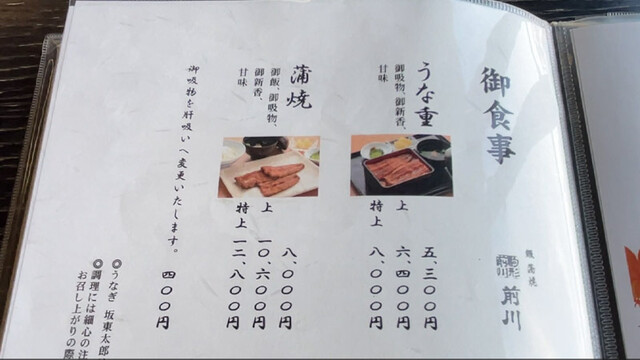 御食事
鰻蒲焼
前川
うな重
御吸物、御新香、
甘味
五、三〇〇円
上 六、四〇〇円
特上 八、〇〇〇円
蒲焼
御飯、御吸物、
御新香、
甘味
八、〇〇〇円
上 一〇、六〇〇円
特上 一二、八〇〇円
御吸物を肝吸いへ変更いたします。 四〇〇円
◎うなぎ 坂東太郎
◎調理には細心の注
お召し上がりの際